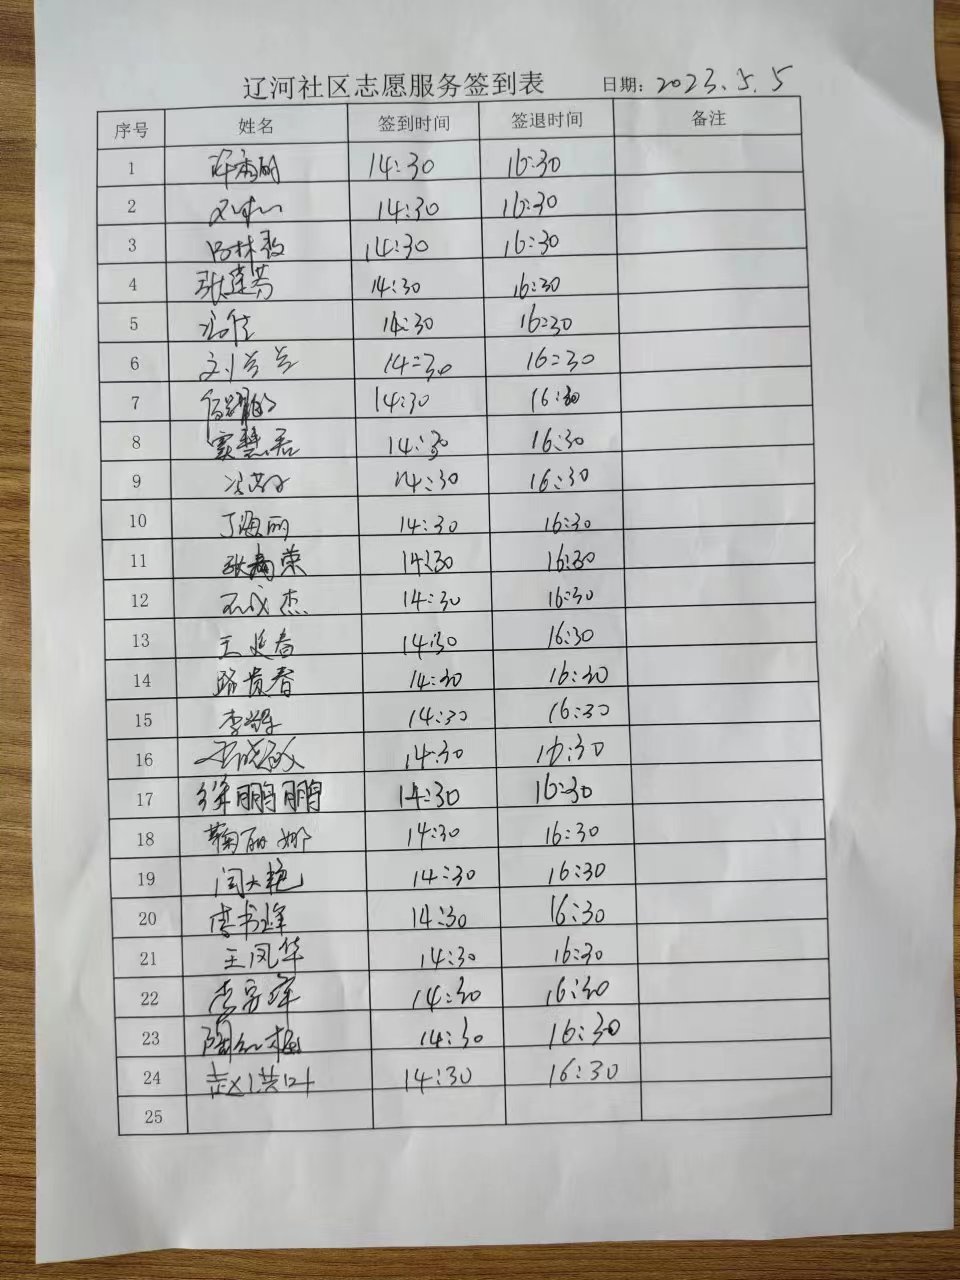 辽河社区志愿服务签到表 日期: 2023.5.5
序号 姓名 签到时间 签退时间 备注
1 14:30 16:30
2 14:30 16:30
3 14:30 16:30
4 张莲芳 14:30 16:30
5 14:30 16:30
6 刘兰兰 14:30 16:30
7 14:30 16:30
8 窦慧君 14:30 16:30
9 14:30 16:30
10 丁海丽 14:30 16:30
11 14:30 16:30
12 石成杰 14:30 16:30
13 王延春 14:30 16:30
14 路贵春 14:30 16:30
15 14:30 16:30
16 14:30 16:30
17 徐鹏鹏 14:30 16:30
18 鞠丽娜 14:30 16:30
19 闫大艳 14:30 16:30
20 14:30 16:30
21 王凤华 14:30 16:30
22 14:30 16:30
23 14:30 16:30
24 赵洪叶 14:30 16:30
25